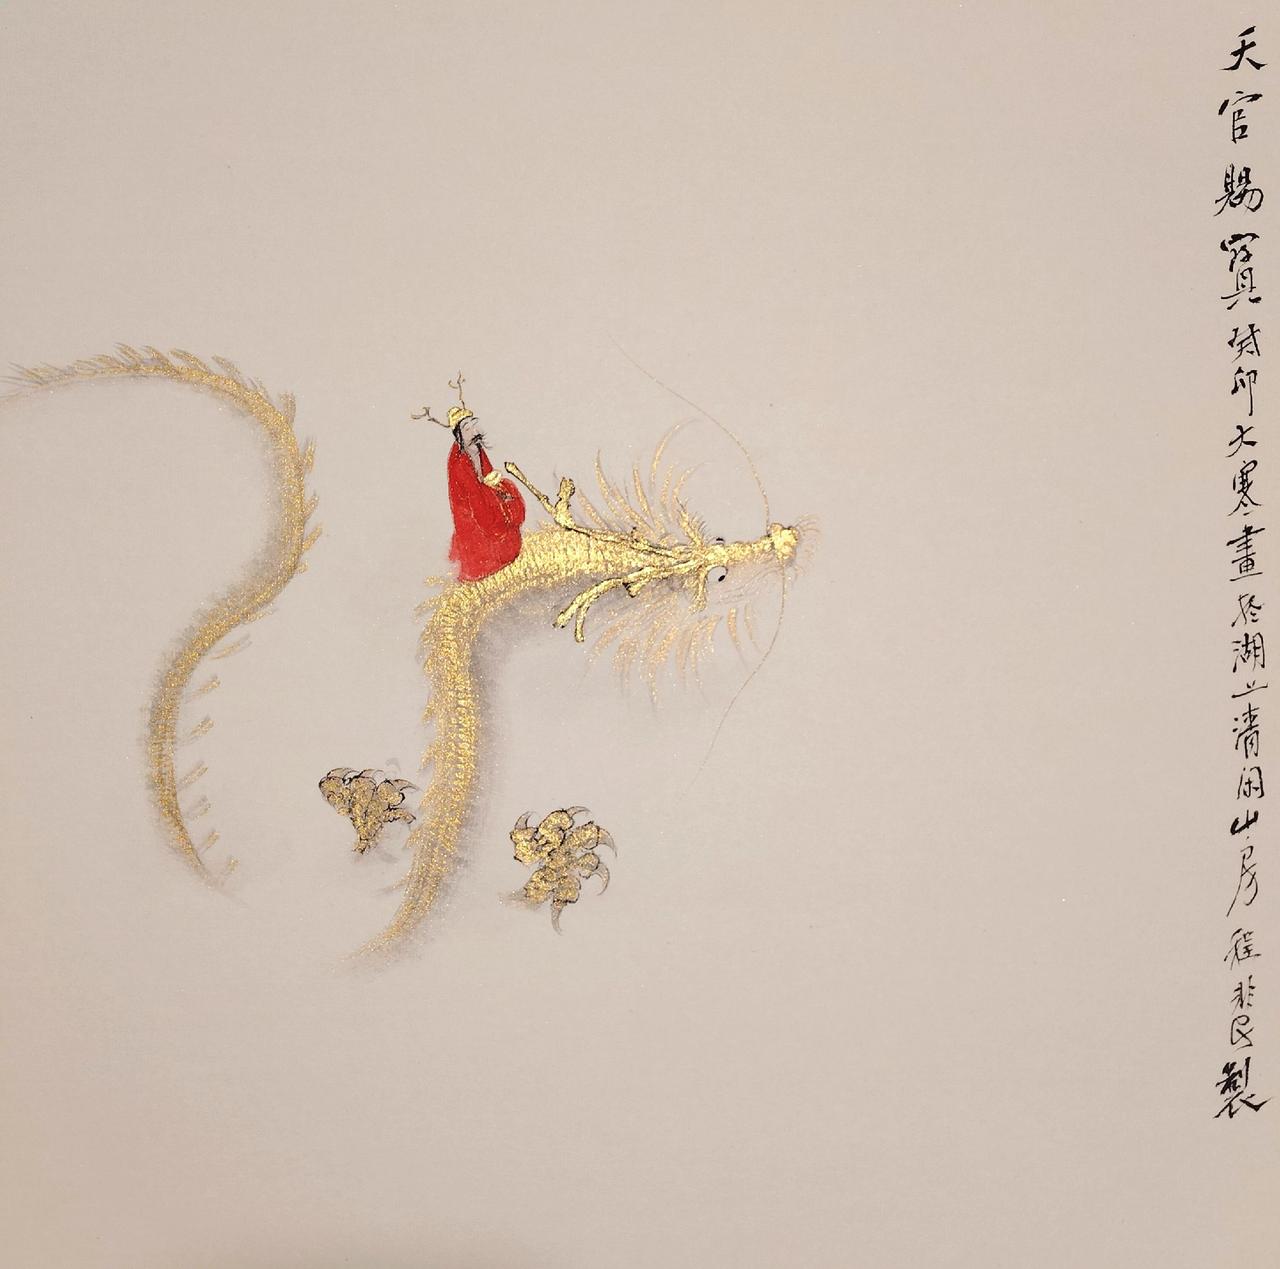 天官賜寶癸卯大寒畫於湖上清閑山房程非民製